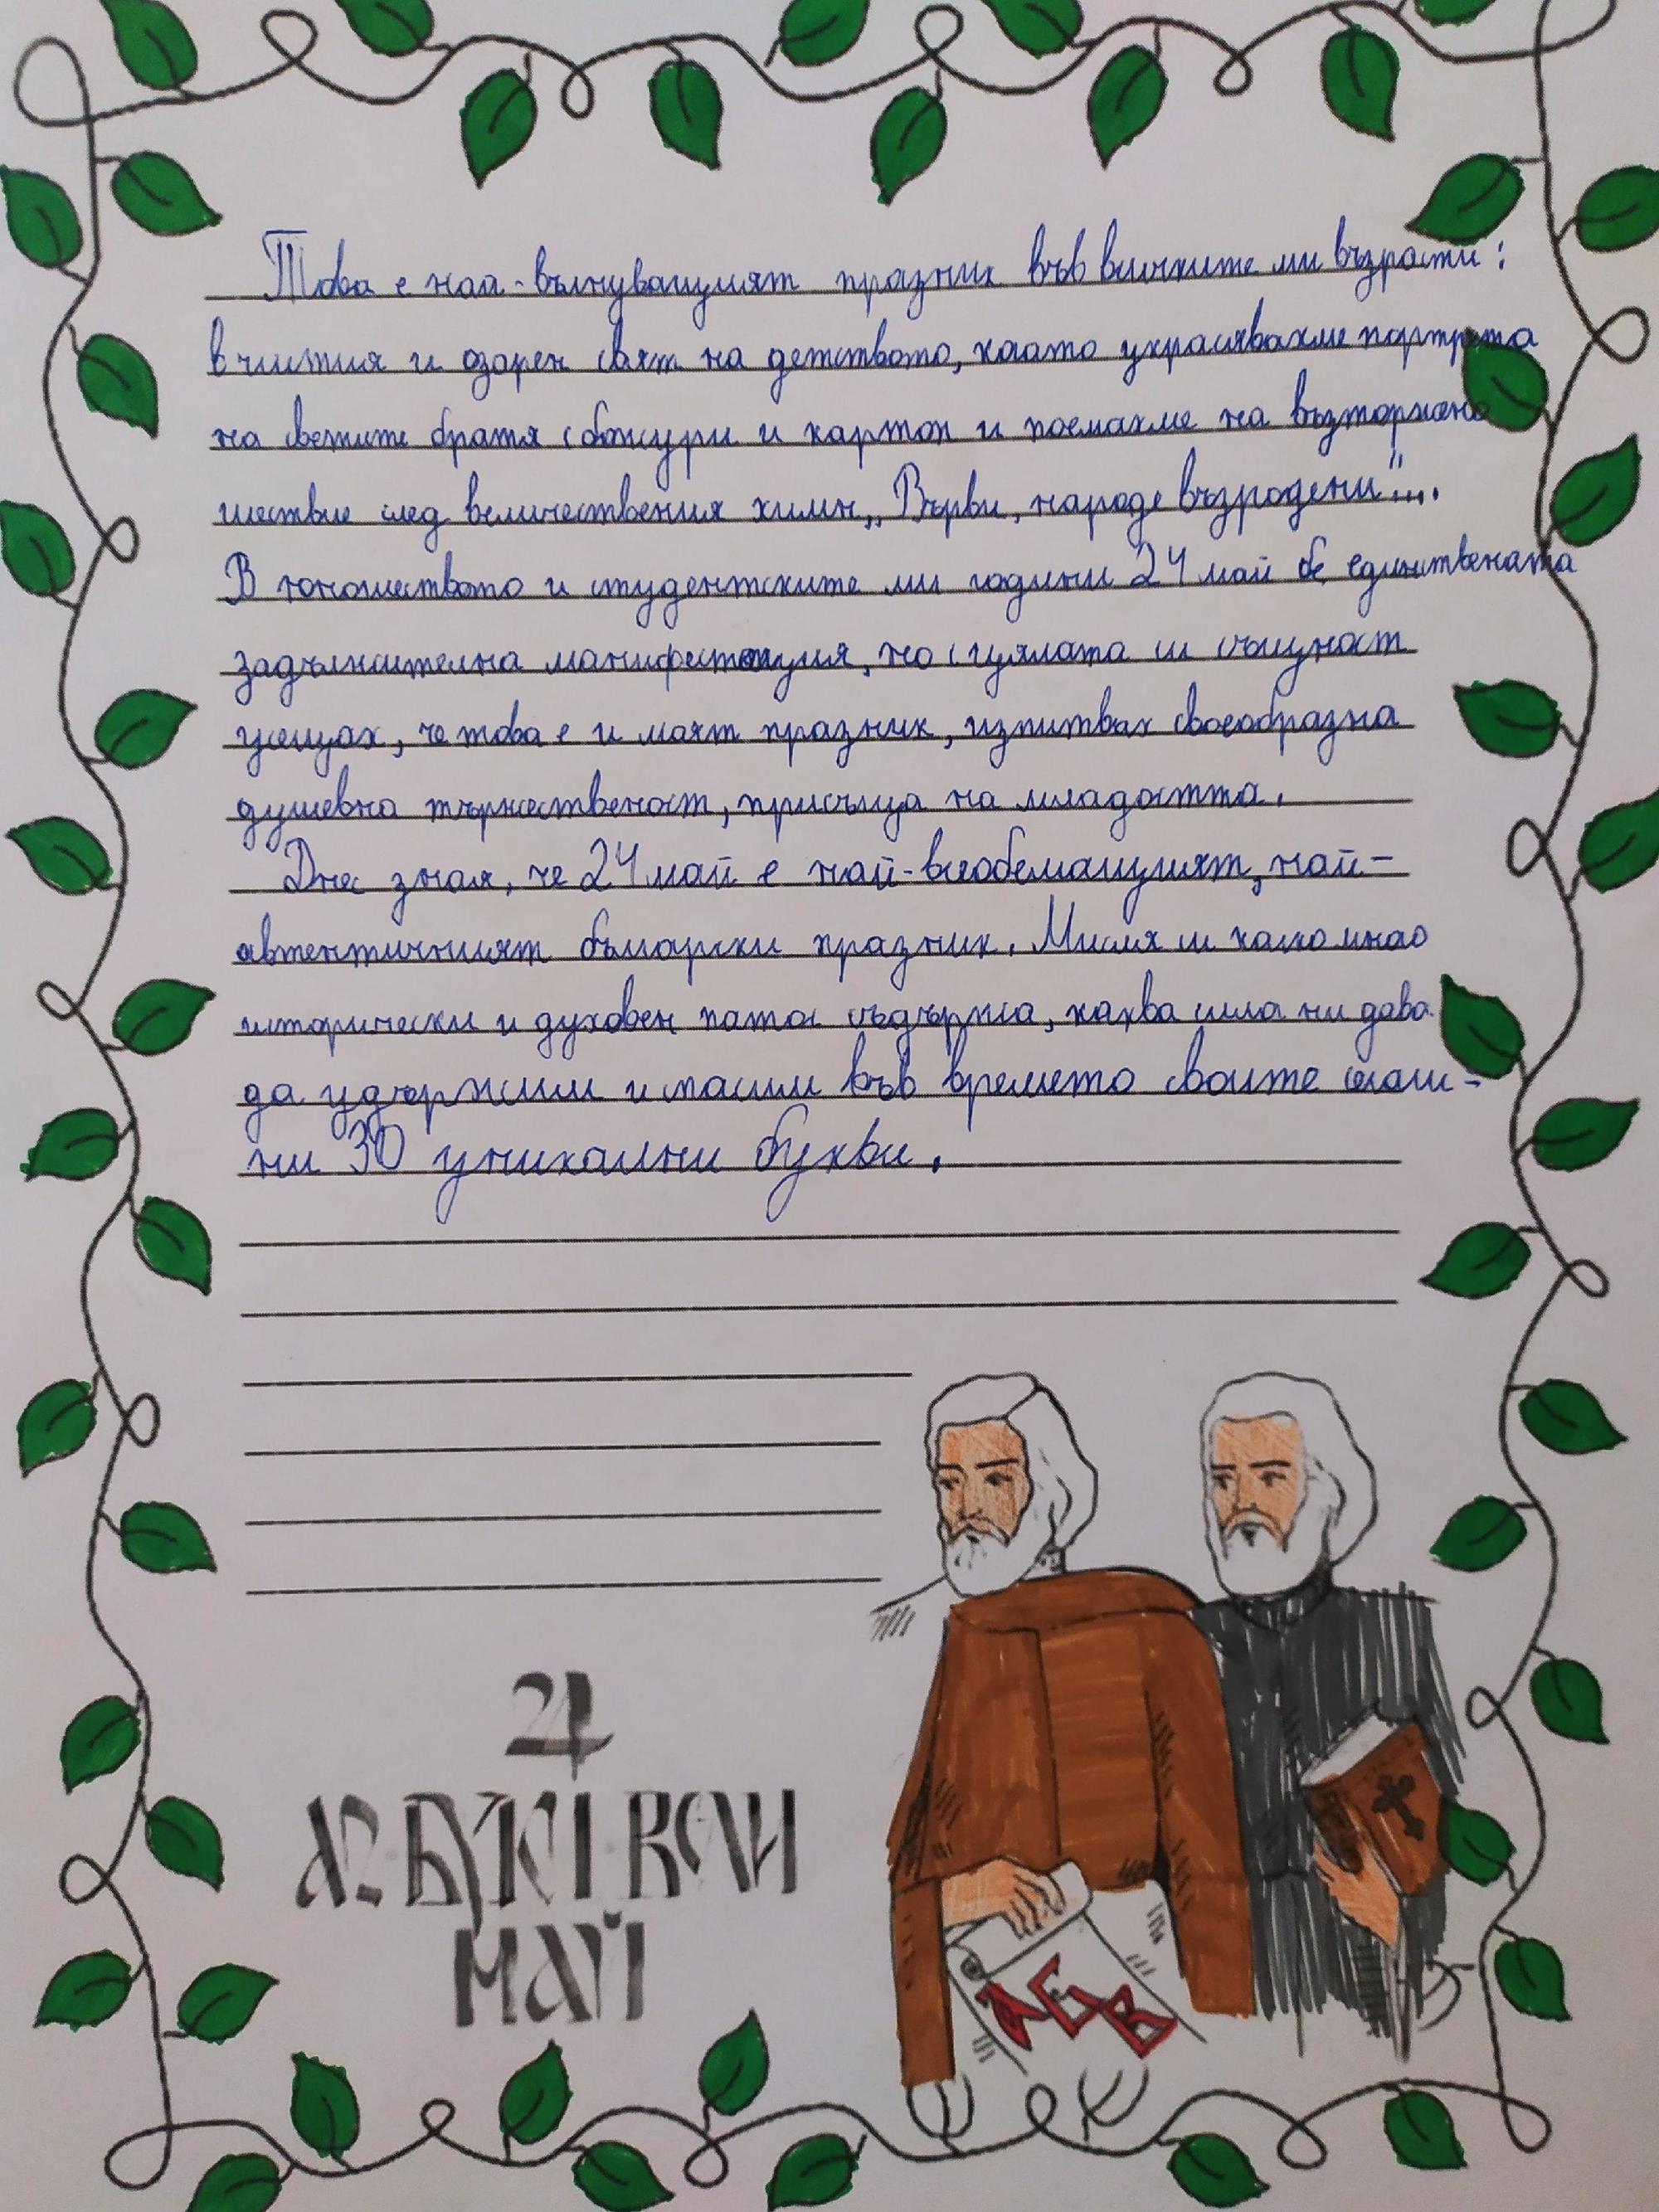 Това е най-вълнуващият празник във всичките ми възрасти:
в чистия и озарен свят на детството, когато украсявахме портрета
на светите братя с божури и картон и поемахме на възторжено
шествие след величествения химн „Върви, народе възродени"...
В юношеството и студентските ми години 24 май бе единствената
задължителна манифестация, но с цялата си същност
усещах, че това е и моят празник, изпитвах своеобразна
душевна тържественост, присъща на младостта.
Днес зная, че 24 май е най-всеобемащият, най-
автентичният български празник. Мисля си колко много
исторически и духовен патос съдържа, каква сила ни дава
да удържим и пасим във времето своите скъпи-
ни 30 уникални букви.
24
АЗ БУКИ ВЕДИ
МАЙ
АБВ